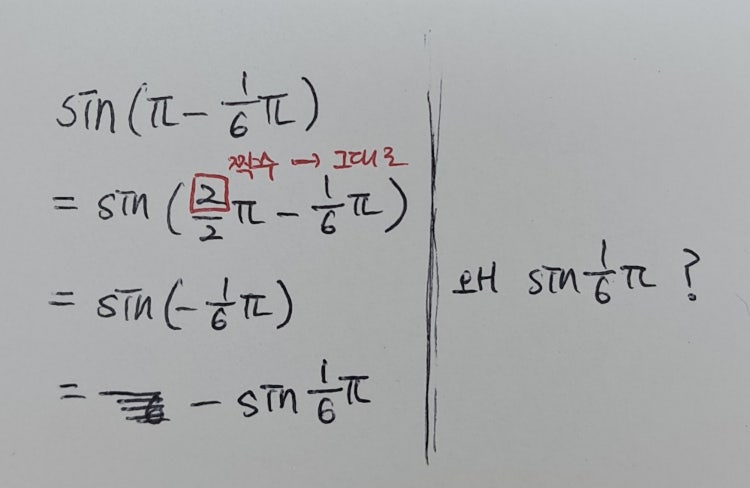 sin(π - 1/6 π)
짝수 → 그대로
= sin(2/2 π - 1/6 π)
= sin(-1/6 π)
= - sin 1/6 π
왜 sin 1/6 π ?